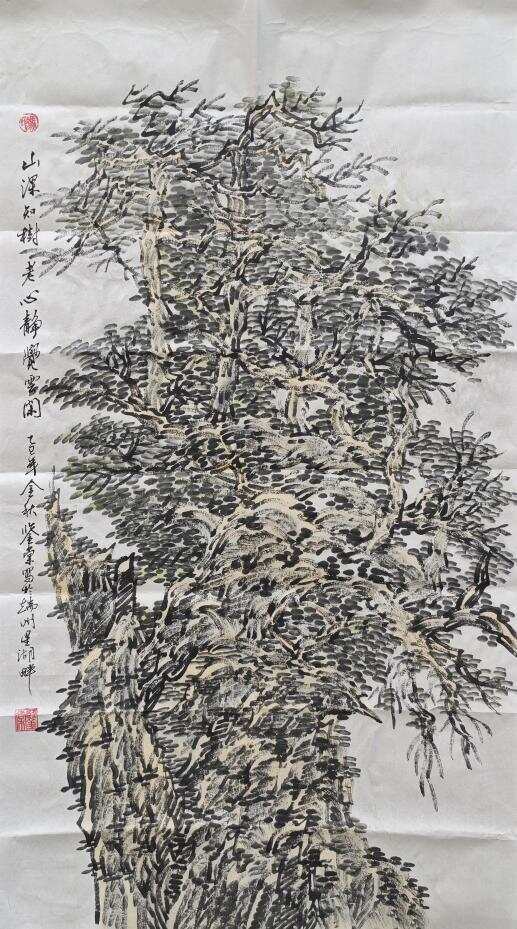 山深知樹老心靜覺雲閑 辛丑年金秋鑒棠寫於端州星湖畔